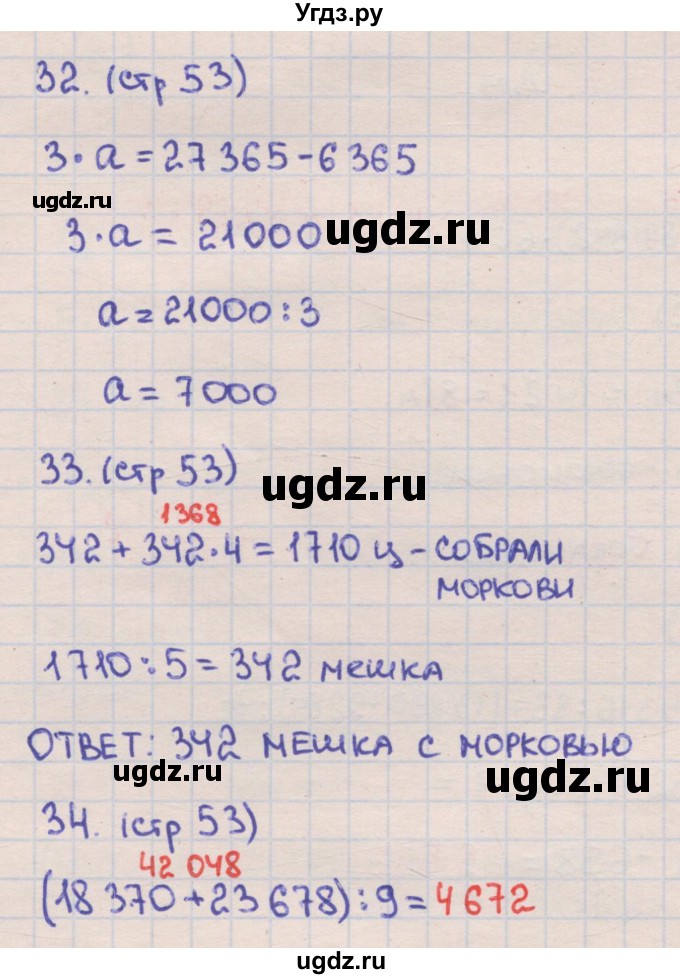 Угдз.ру
32. (стр 53)
3·a = 27 365 - 6 365
ugdz.ru
3·a = 21000
ugdz.ru
a = 21000 : 3
a = 7000
33. (стр 53)
ugdz.ru
1368
342 + 342·4 = 1710 ц - СОБРАЛИ
МОРКОВИ
1710 : 5 = 342 мешка
ОТВЕТ: 342 МЕШКА С МОРКОВЬЮ
ugdz.ru
ugdz.ru
34. (стр 53)
42 048
(18 370 + 23 678) : 9 = 4 672
ugdz.ru